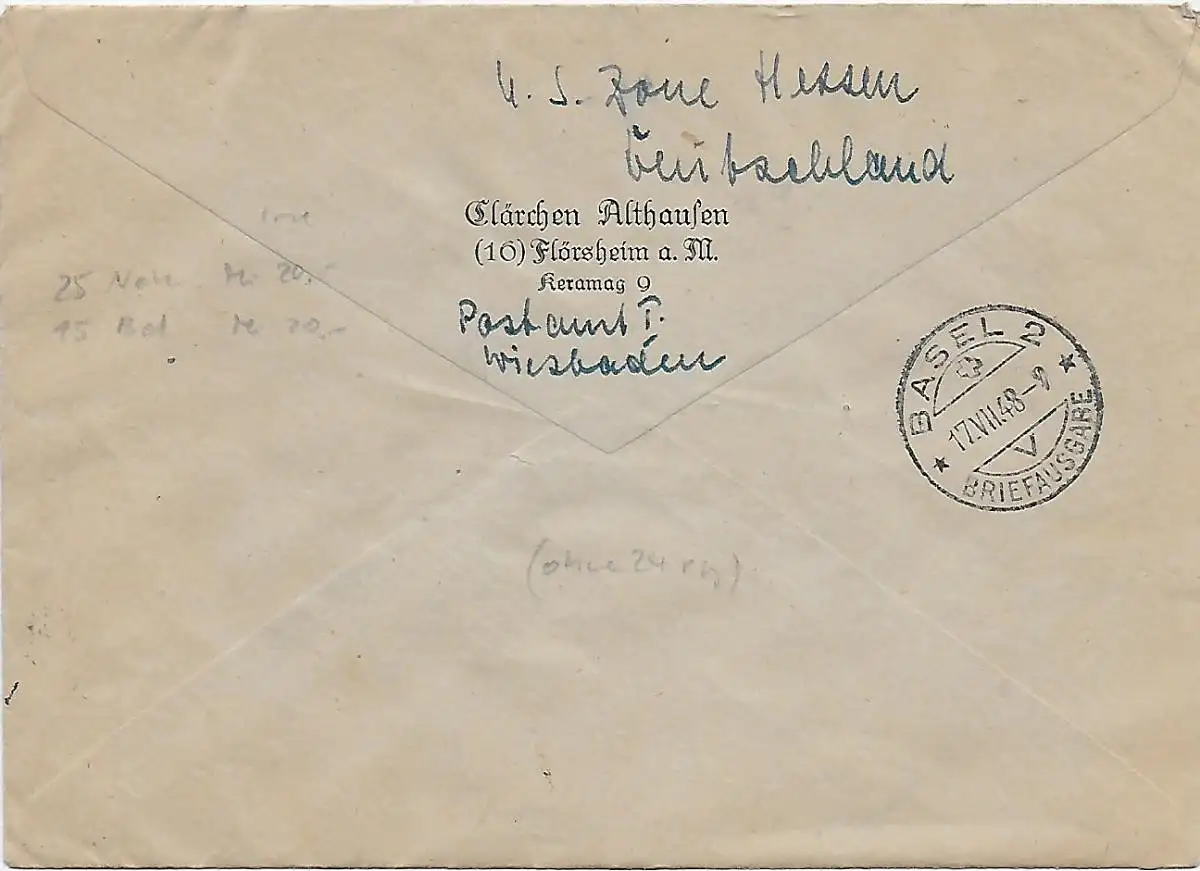 U. S. Zone Hessen
Deutschland
Clärchen Althausen
(16) Flörsheim a. M.
Keramag 9
Postamt I.
Wiesbaden
25 M. 20.-
15 M 20,-
BASEL 2
17.VII.48-9
V
BRIEFAUSGABE
(ohne 24